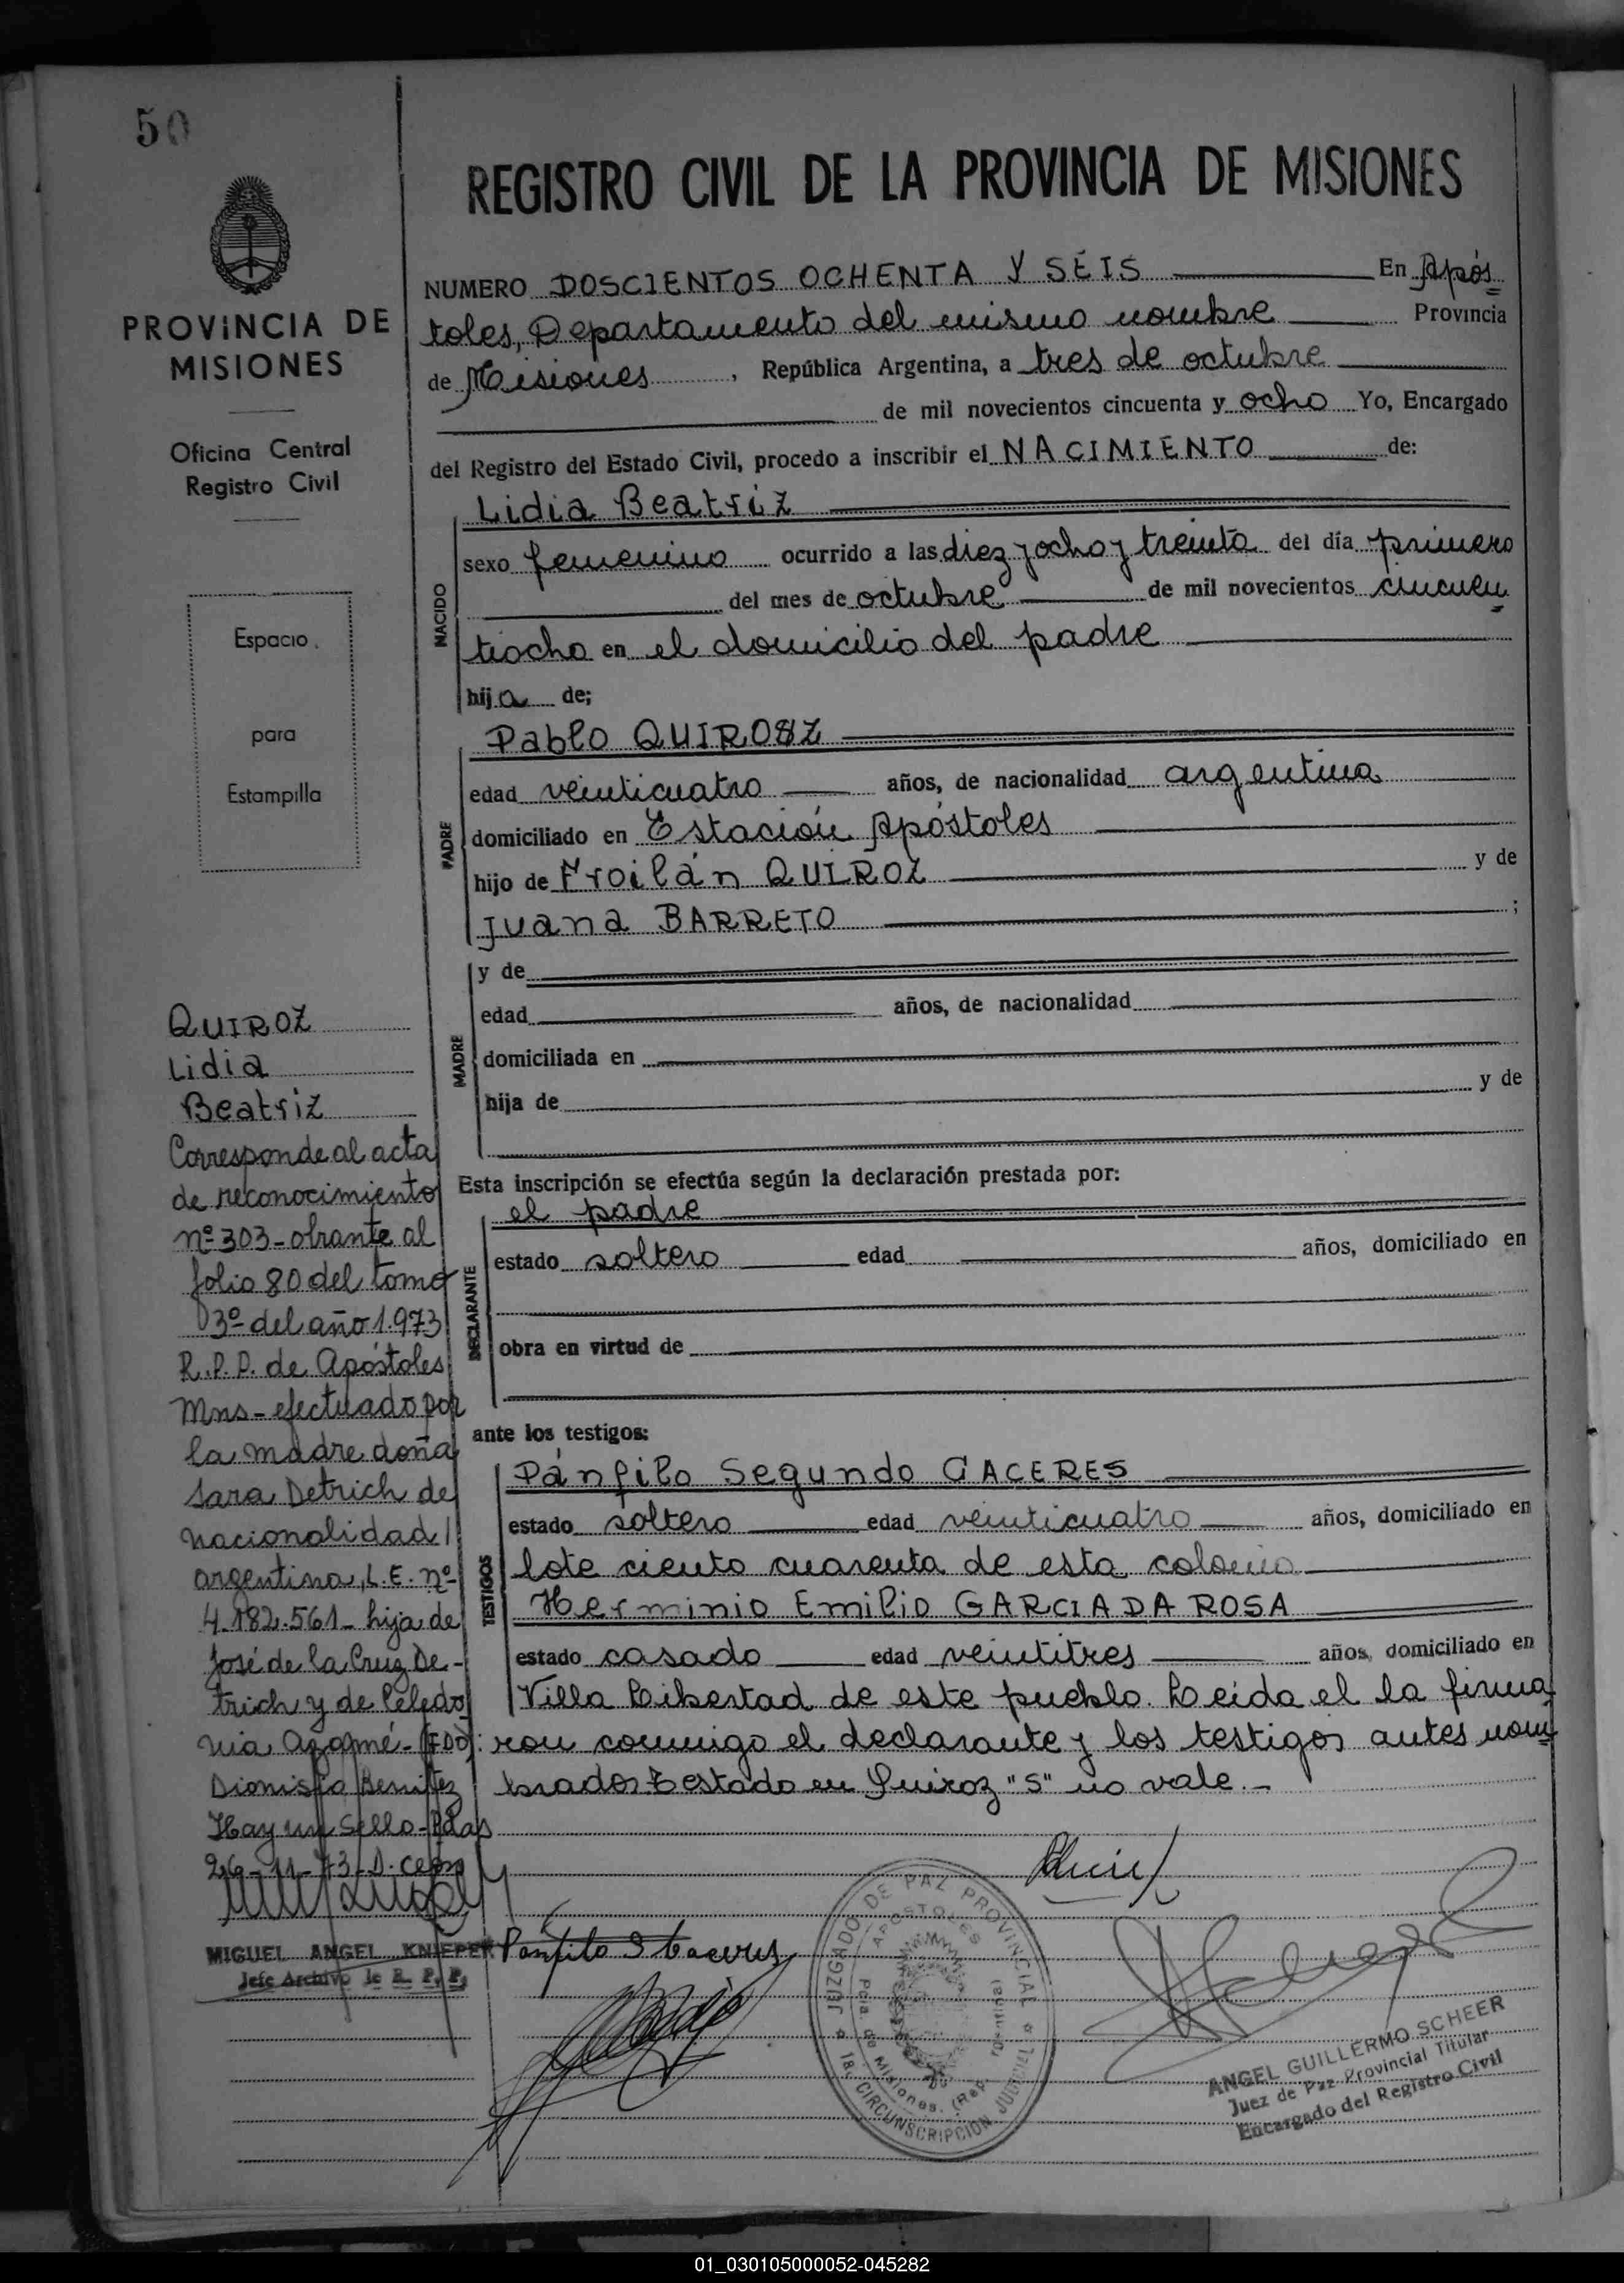 50
REGISTRO CIVIL DE LA PROVINCIA DE MISIONES
PROVINCIA DE
MISIONES
Oficina Central
Registro Civil
Espacio
para
Estampilla
NUMERO DOSCIENTOS OCHENTA Y SEIS En Após
toles, Departamento del mismo nombre Provincia
de Misiones, República Argentina, a tres de octubre
de mil novecientos cincuenta y ocho Yo, Encargado
del Registro del Estado Civil, procedo a inscribir el NACIMIENTO de:
NACIDO
Lidia Beatriz
sexo femenino ocurrido a las diez y ocho y treinta del día primero
del mes de octubre de mil novecientos cincuen
tiocho en el domicilio del padre
hija de;
PADRE
Pablo QUIROSZ
edad veinticuatro años, de nacionalidad argentina
domiciliado en Estación Apóstoles
hijo de Froilán QUIROZ y de
Juana BARRETO ;
MADRE
y de
edad años, de nacionalidad
domiciliada en
hija de y de
Esta inscripción se efectúa según la declaración prestada por:
DECLARANTE
el padre
estado soltero edad años, domiciliado en
obra en virtud de
ante los testigos:
TESTIGOS
Pánfilo Segundo CACERES
estado soltero edad veinticuatro años, domiciliado en
lote ciento cuarenta de esta colonia
Herminio Emilio GARCIA DA ROSA
estado casado edad veintitres años, domiciliado en
Villa Libertad de este pueblo. Leida el la firma
ron conmigo el declarante y los testigos antes nom
brados. Testado en Quiroz "S" no vale.-
QUIROZ
Lidia
Beatriz
Corresponde al acta
de reconocimiento
nº 303- obrante al
folio 80 del tomo
3º del año 1.973
R.P.P. de Apóstoles
Mns- efectuado por
la madre doña
Sara Detrich de
nacionalidad
argentina, L.E. nº
4.182.561- hija de
José de la Cruz De-
trich y de Celedo
nia
Dionisia Benitez
Hay un Sello- Pdas
26-11-73
MIGUEL ANGEL KNIEPER
Jefe Archivo de R. P. P.
Pánfilo S Caceres
JUZGADO DE PAZ PROVINCIAL
APOSTOLES
Pcia. de Misiones. (Rep. Argentina)
18. CIRCUNSCRIPCION JUDICIAL
ANGEL GUILLERMO SCHEER
Juez de Paz Provincial Titular
Encargado del Registro Civil
01_030105000052-045282